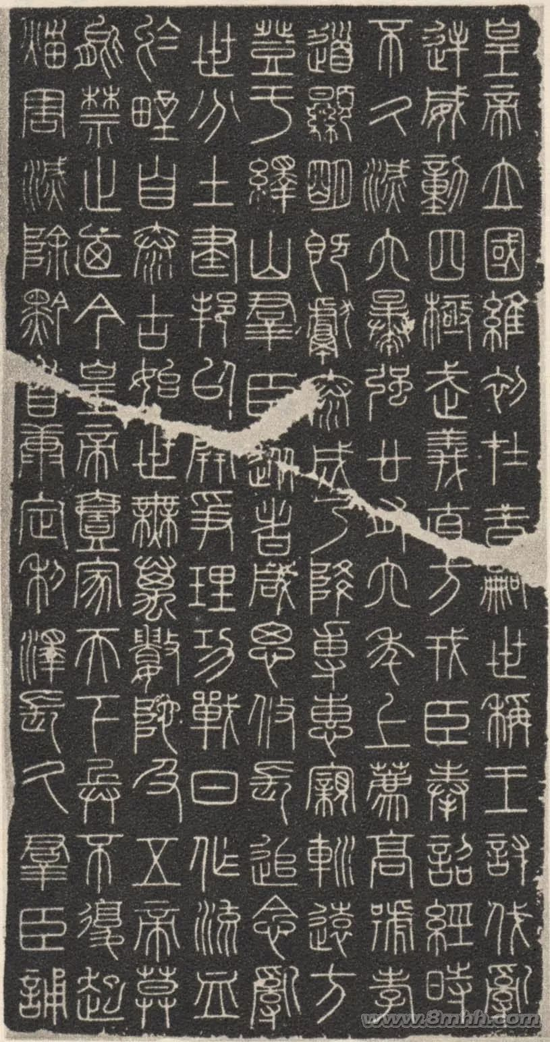 皇帝立國維初在昔嗣世稱王討伐亂
逆威動四極武義直方戎臣奉詔經時
不久滅六暴强廿有六年上薦高號孝
道顯明既獻泰成乃降專惠親巡遠方
登于繹山羣臣從者咸思攸長追念亂
世分土建邦以開爭理功戰日作流血
於野自泰古始世無萬數陀及五帝莫
能禁止廼今皇帝壹家天下兵不復起
災害滅除黔首康定利澤長久羣臣誦
www.8mhh.com